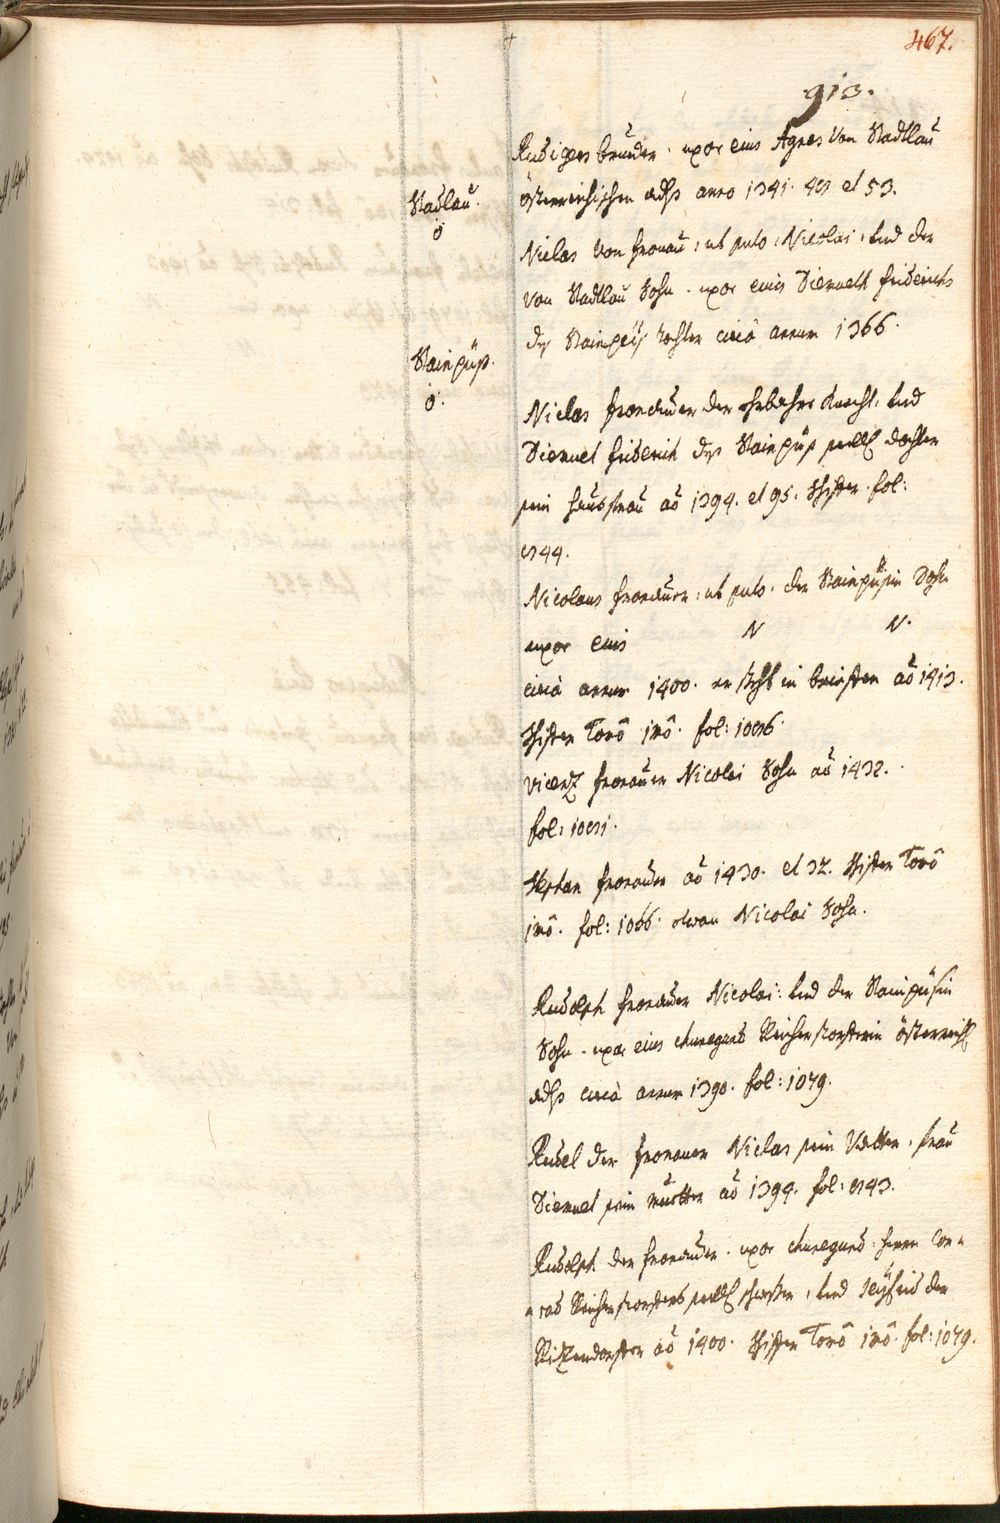 467.
913.
Rudigers bruder. uxor eius Agnes von Stadtlau
österreichischen adls anno 1341. 42 et 53.
Stadlau.
ö
Niclas von fronau, ut puto, Nicolai, und der
von Stadtlau Sohn. uxor eius Diemueth friderichs
des Stainpeiß tochter circà annum 1366.
Stainpüß.
ö.
Niclas fronauer der erbahre Knecht, und
Diemuet friderich des Stainpüß seelig dochter
sein hausfrau aõ 1394. et 95. Schifer fol:
244.
Nicolaus fronauer, ut puto, der Stainpüsin Sohn
uxor eius N N.
circà annum 1400. er steht in brieffen aõ 1413.
Schifer Tomô imô. fol: 1026.
vicenz fronauer Nicolai Sohn aõ 1432.
fol: 1021.
Stephan fronauer aõ 1430. et 32. Schifer Tomô
imô. fol: 1066. etwan Nicolai Sohn.
Rudolph fronauer Nicolai, und der Stainpüsin
Sohn. uxor eius Kunegund Reicherstorfferin österreich.
adls circà annum 1390. fol: 1079.
Rudel der fronauer Niclas sein Vatter, frau
Diemuet sein muetter aõ 1394. fol: 243.
Rudolph der fronauer. uxor Kunegund. herrn Con-
-rad Reicherstorffers seelig schwester, und
der
aõ 1400. Schifer Tomô imô. fol: 1079.